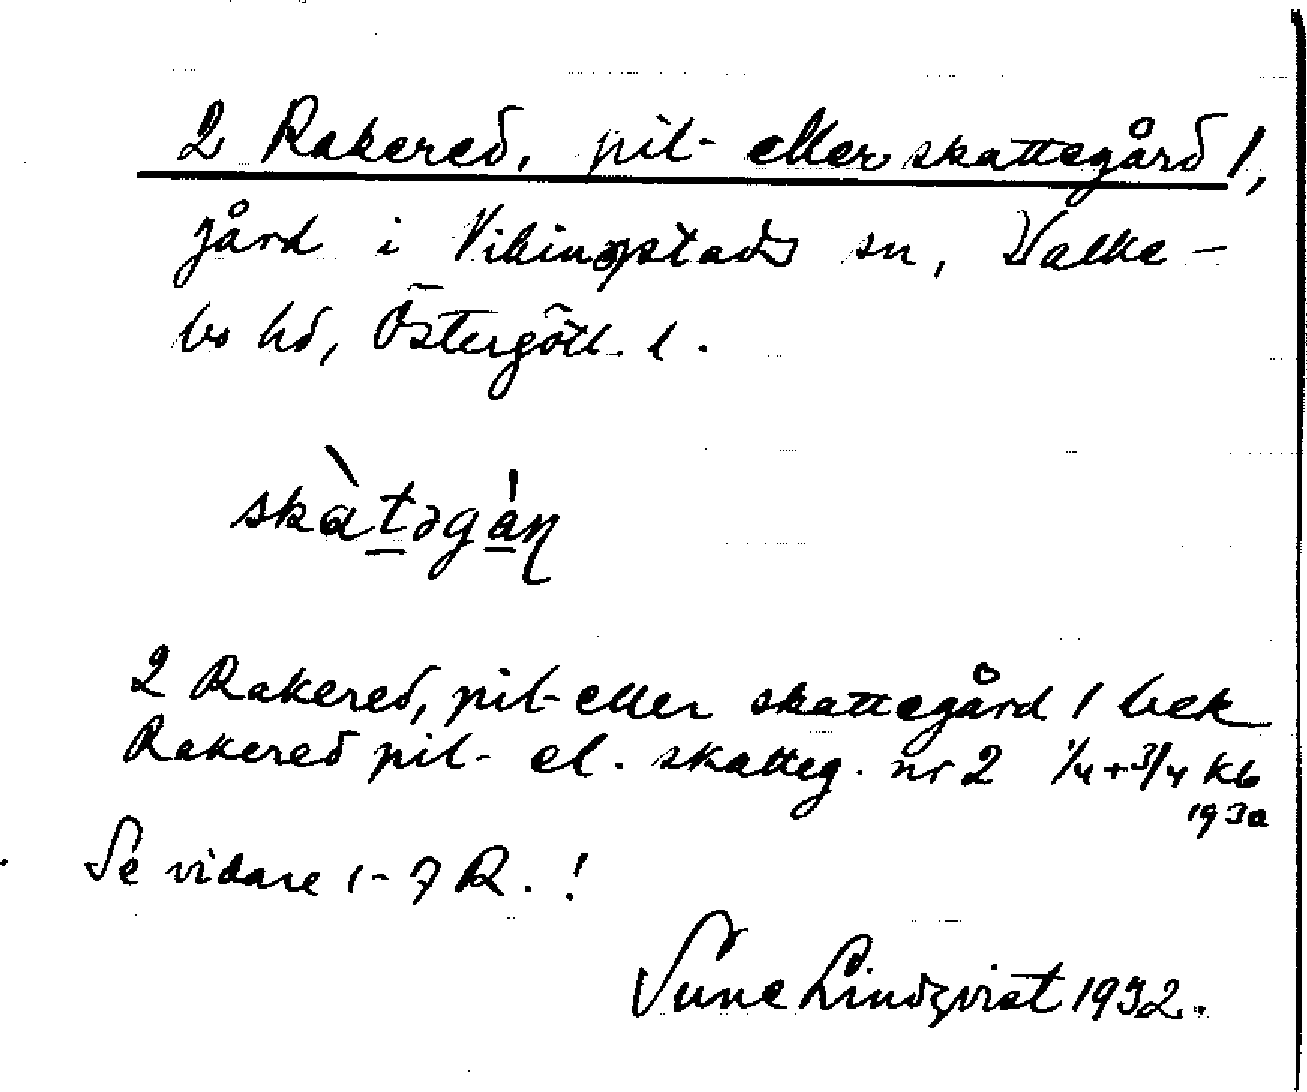 2 Rakered, pil- eller skattegård 1,
gård i Vikingstads sn, Valke-
bo hd, Östergötl. l.
skàtəgán
2 Rakered, pil- eller skattegård 1 bek
Rakered pil- el. skatteg. nr 2 1/4+3/4 Kb
1930
Se vidare 1-7 R. !
Sune Lindqvist 1932.